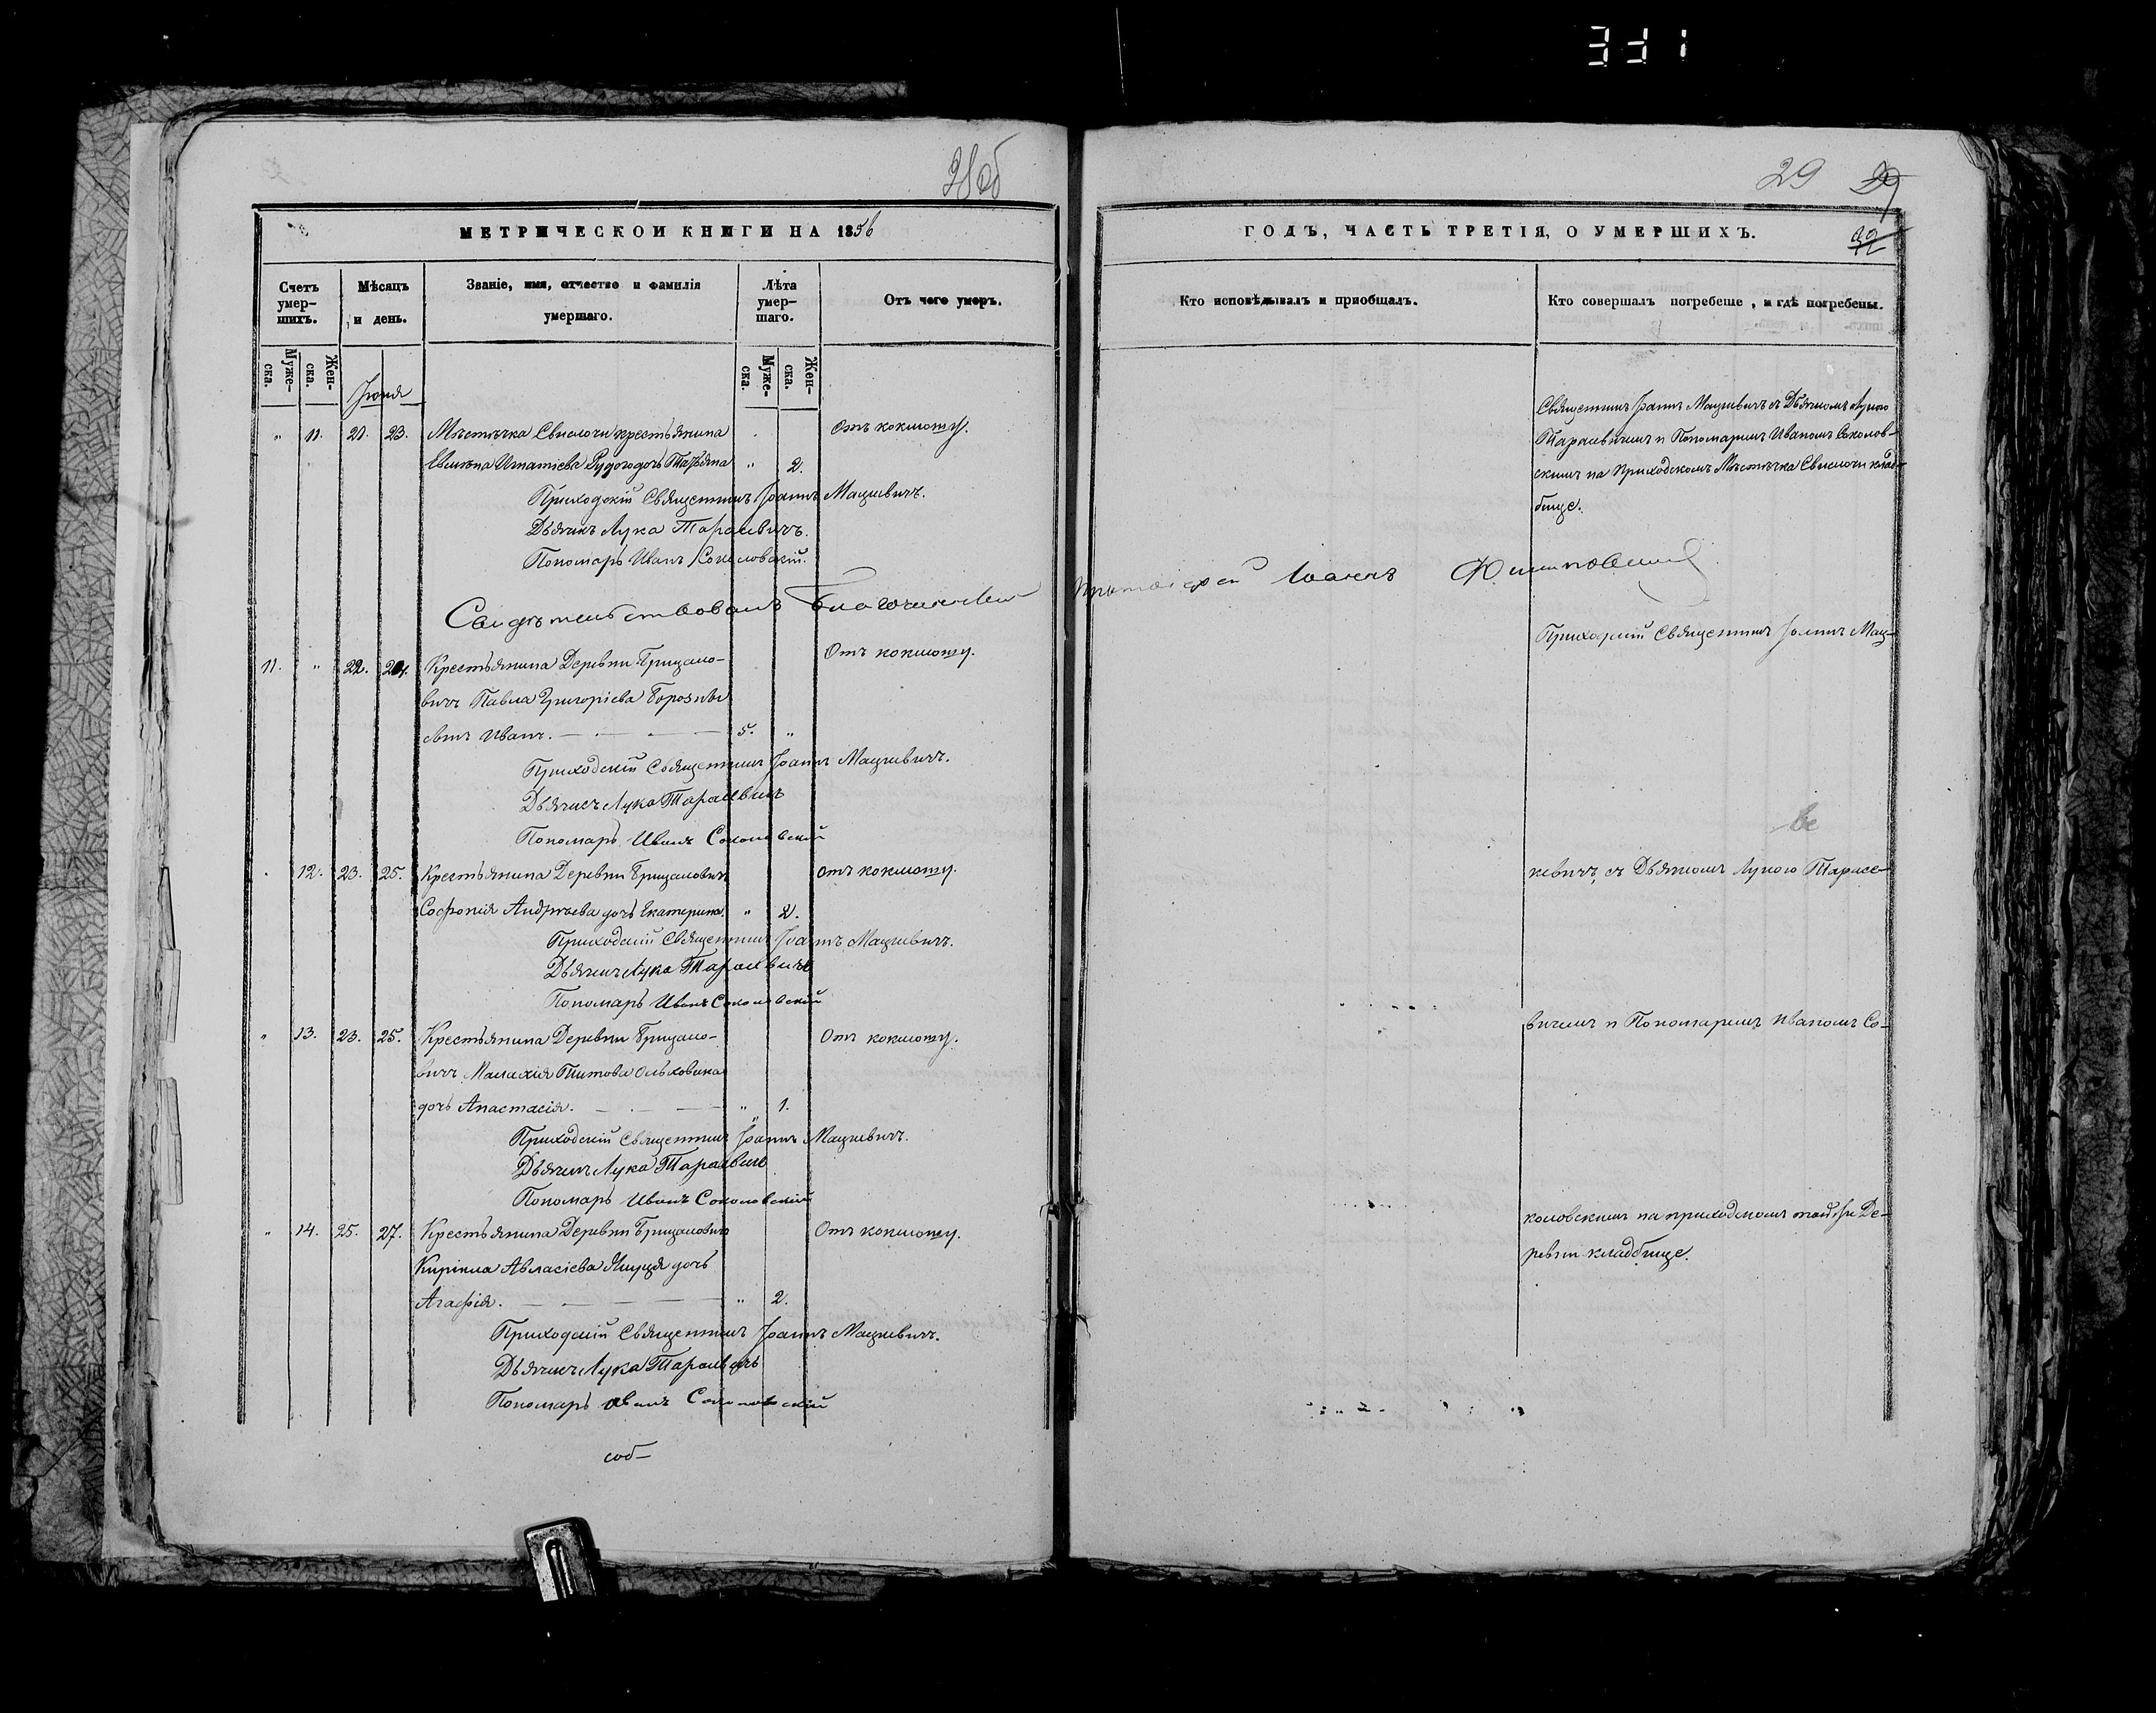 331
28об
29 29
32
МЕТРИЧЕСКОЙ КНИГИ НА 1856
ГОДЪ, ЧАСТЬ ТРЕТІЯ, О УМЕРШИХЪ.
Счетъ умер-
шихъ.
Мѣсяцъ
и день.
Званіе, имя, отчество и фамилія
умершаго.
Лѣта
умер-
шаго.
Отъ чего умеръ.
Кто исповѣдывалъ и пріобщалъ.
Кто совершалъ погребеніе, и гдѣ погребены.
Муже-
ска.
Жен-
ска.
Муже-
ска.
Жен-
ска.
Іюня
" 11. 21. 23. Мѣстечка Свислочи крестьянина Отъ коклюшу.
Игнатіева дочь Татьяна " 2.
Приходскій Священникъ Іоаннъ Мацкевичъ.
Дьячекъ Лука Тарасевичъ.
Пономарь Иванъ Соколовскій.
Священникъ Іоаннъ Мацкевичъ съ Дьячкомъ Лукою
Тарасевичемъ и Пономаремъ Иваномъ Соколов-
скимъ на приходскомъ Мѣстечка Свислочи клад-
бище.
Свидѣтельствовалъ Благочинный Протоіерей Іоаннъ
11. " 22. 24. Крестьянина Деревни Брицало- Отъ коклюшу.
вичъ Павла Григоріева
сынъ Иванъ. — — — 5. "
Приходскій Священникъ Іоаннъ Мацкевичъ.
Дьячекъ Лука Тарасевичъ
Пономарь Иванъ Соколовскій
Приходскій Священникъ Іоаннъ Мац-
" 12. 23. 25. Крестьянина Деревни Брицаловичъ отъ коклюшу.
Софронія Андреева дочь Екатерина. " 2.
Приходскій Священникъ Іоаннъ Мацкевичъ.
Дьячекъ Лука Тарасевичъ
Пономарь Иванъ Соколовскій
кевичъ, съ Дьячкомъ Лукою Тарасе-
" 13. 23. 25. Крестьянина Деревни Брицало- Отъ коклюшу.
вичъ Малахія Титова Ольховика
дочь Анастасія. — — — " 1.
Приходскій Священникъ Іоаннъ Мацкевичъ.
Дьячекъ Лука Тарасевичъ
Пономарь Иванъ Соколовскій
вичемъ и Пономаремъ Иваномъ Со-
" 14. 25. 27. Крестьянина Деревни Брицаловичъ Отъ коклюшу.
Кирилла Авласіева дочь
Агафія. — — — — " 2.
Приходскій Священникъ Іоаннъ Мацкевичъ.
Дьячекъ Лука Тарасевичъ
Пономарь Иванъ Соколовскій
коловскимъ на приходскомъ той же Де-
ревни кладбище.
соб-